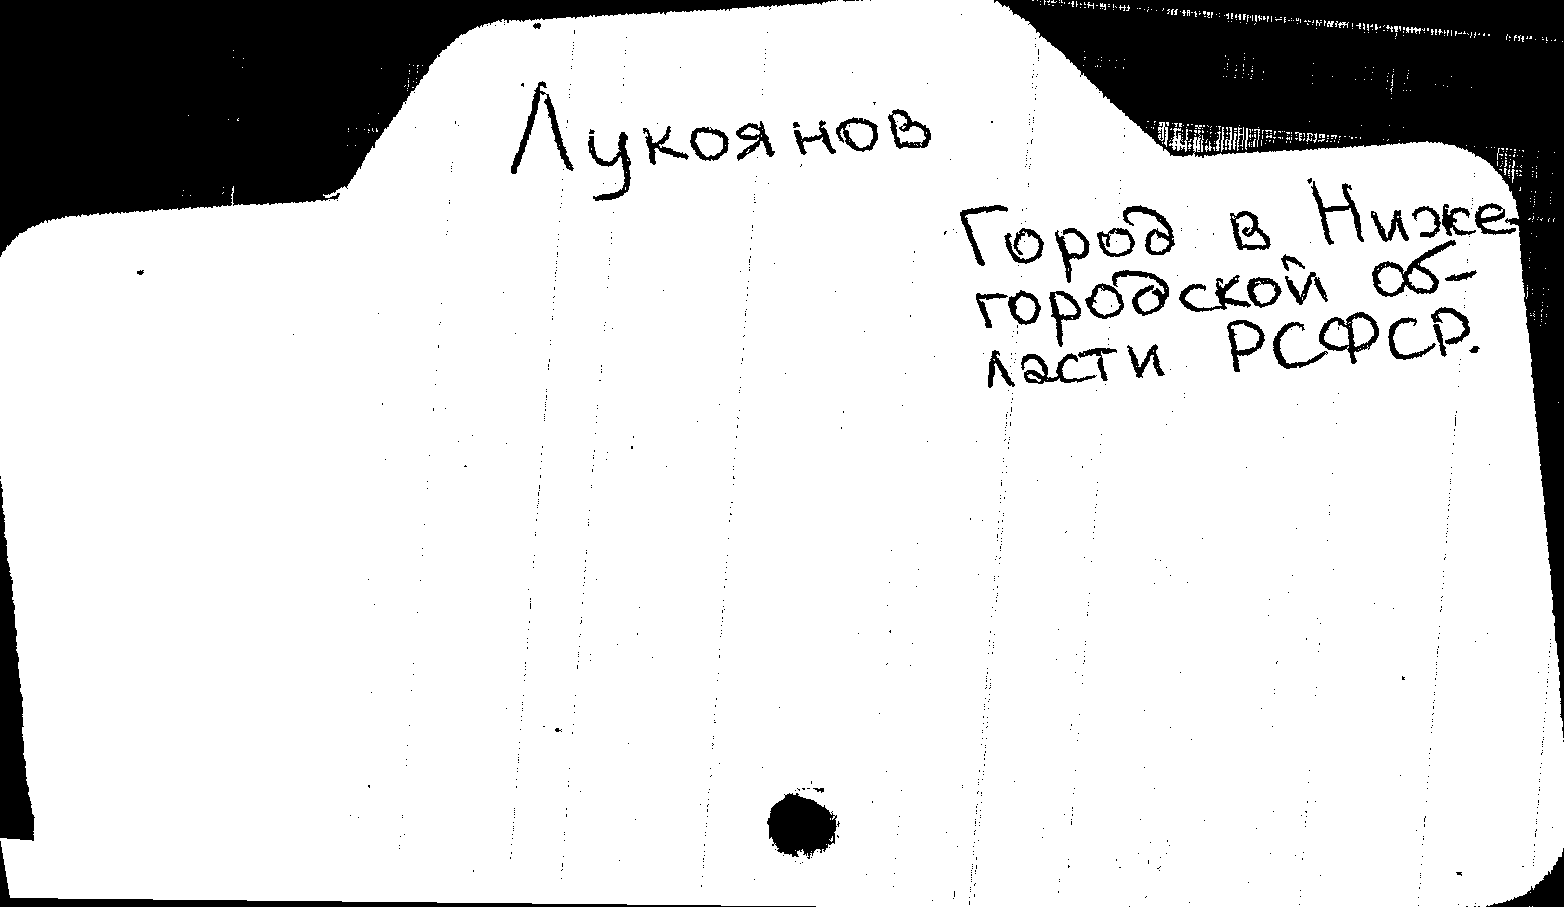 Лукоянов
Город в Ниже-
городской об-
ласти РСФСР.